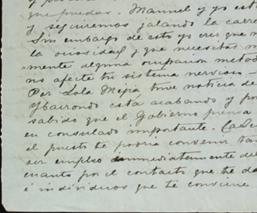 que puedas. Manuel y yo est
y seguiremos jalando la carre
Sin embargo de esto yo creo que n
la ociosidad y que necesitas
mente alguna ocupacion metod
no afecte tu sistema nervioso -
Por Lola Mejia tuve noticia de
esta acabando y po
sabido que el Gobierno piensa
en consulado importante.
el puesto te podria convenir tan
ser empleo inmediatamente de
cuanto por el contacto que te da
é individuos que te conviene